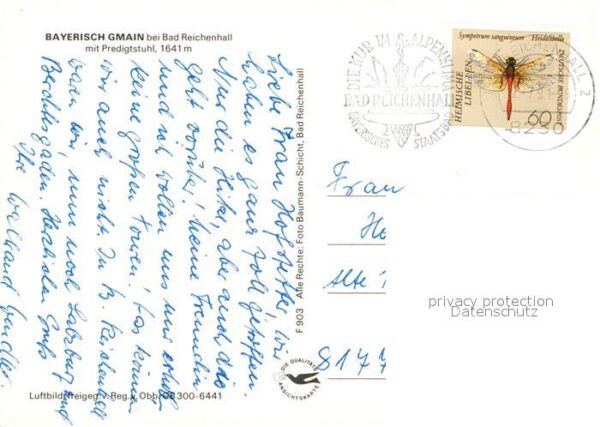 BAYERISCH GMAIN bei Bad Reichenhall
mit Predigtstuhl, 1641 m
Liebe Frau Hofstetter, wir
haben es ganz toll getroffen.
Nur die Hitze, aber auch das
geht vorüber! Meine Freundin
und ich wollen uns nur erholen
keine großen Touren! Das können
wir auch nicht. In B. Reichenhall
waren wir, nun noch Salzburg und
Berchtesgaden. Herzliche Grüße
Ihre
F 903 Alle Rechte: Foto Baumann-Schicht, Bad Reichenhall
Luftbild freigeg. v. Reg. v. Obb. GS 300-6441
DIE KUR IM ALPENKLIMA
BAD REICHENHALL
BAYERISCHES STAATSBAD
REICHENHALL 2
8230
Sympetrum sanguineum Heidelibelle
HEIMISCHE
LIBELLEN
DEUTSCHE BUNDESPOST
60
Frau
Ho
Alte
privacy protection
Datenschutz
8177
DIE QUALITÄTS
ANSICHTSKARTE